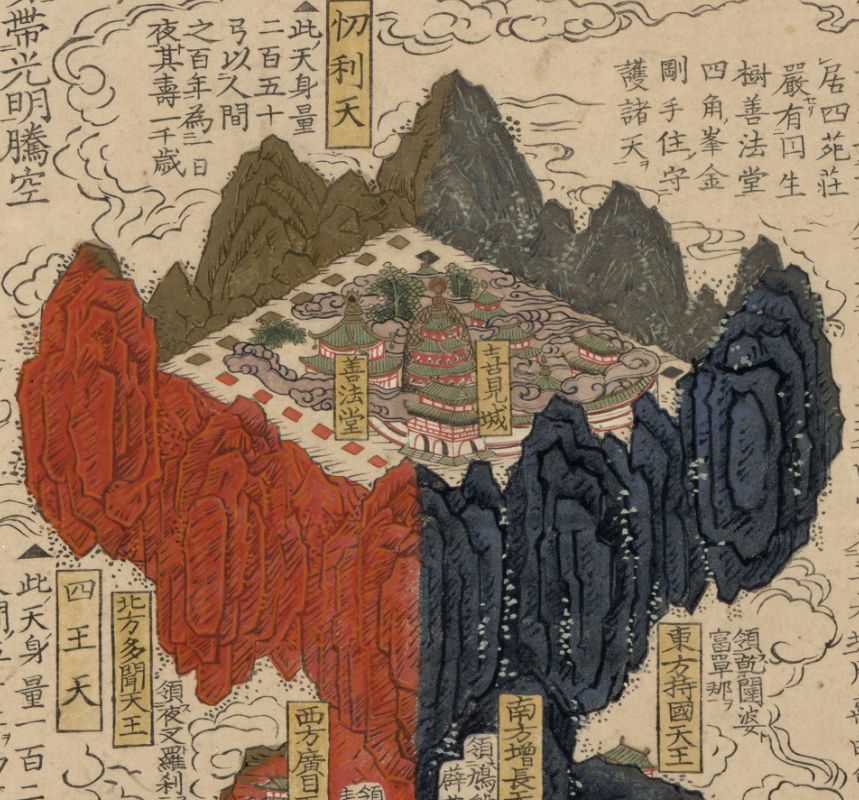 居四苑莊
嚴セリ有円生
樹善法堂
四角峯金
剛手住守
護諸天ヲ
忉利天
▲此天身量
二百五十
弓以人間
之百年為一日
夜其壽一千歳
帶光明騰空
喜見城
善法堂
領乾闥婆
富單那ヲ
東方持國天王
南方增長
領鳩
西方廣目
領
領夜叉羅刹
北方多聞天王
四王天
▲此天身量一百二